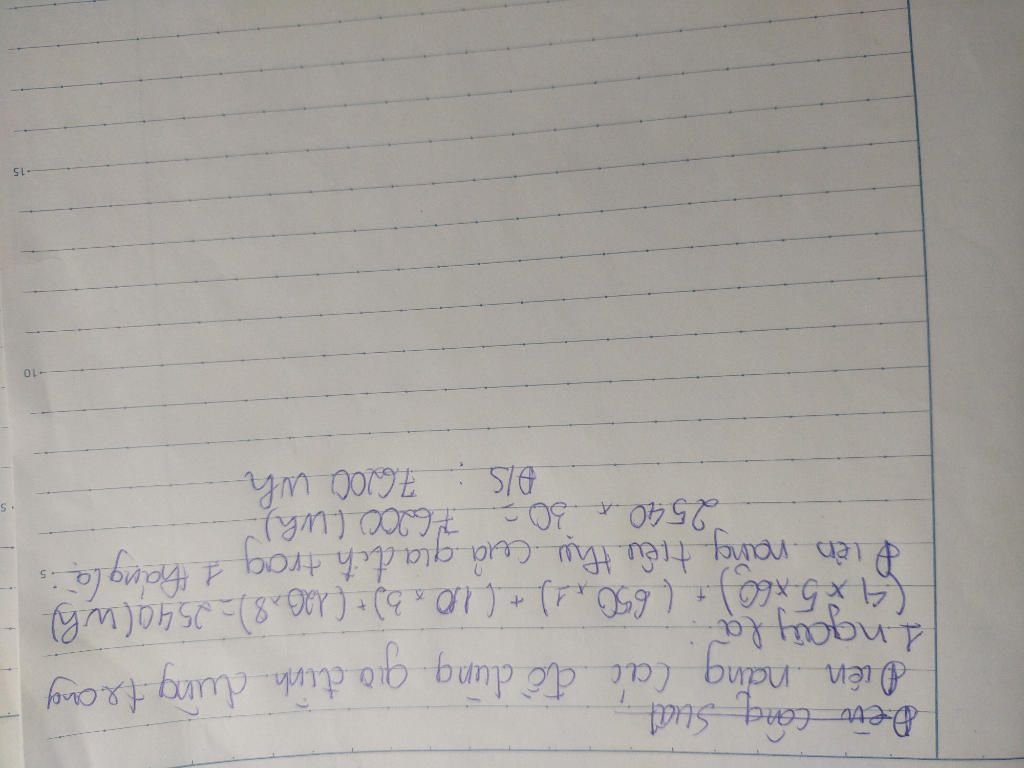 Đèn công suất
Điện năng các đồ dùng gia đình dùng trong
1 ngày là:
(4 x 5 x 60) + (650 x 1) + (110 x 3) + (120 x 8) = 2540 (Wh)
Điện năng tiêu thụ của gia đìh trog 1 tháng là:
2540 x 30 = 76200 (Wh)
Đ/S : 76200 Wh
5
5
10
15